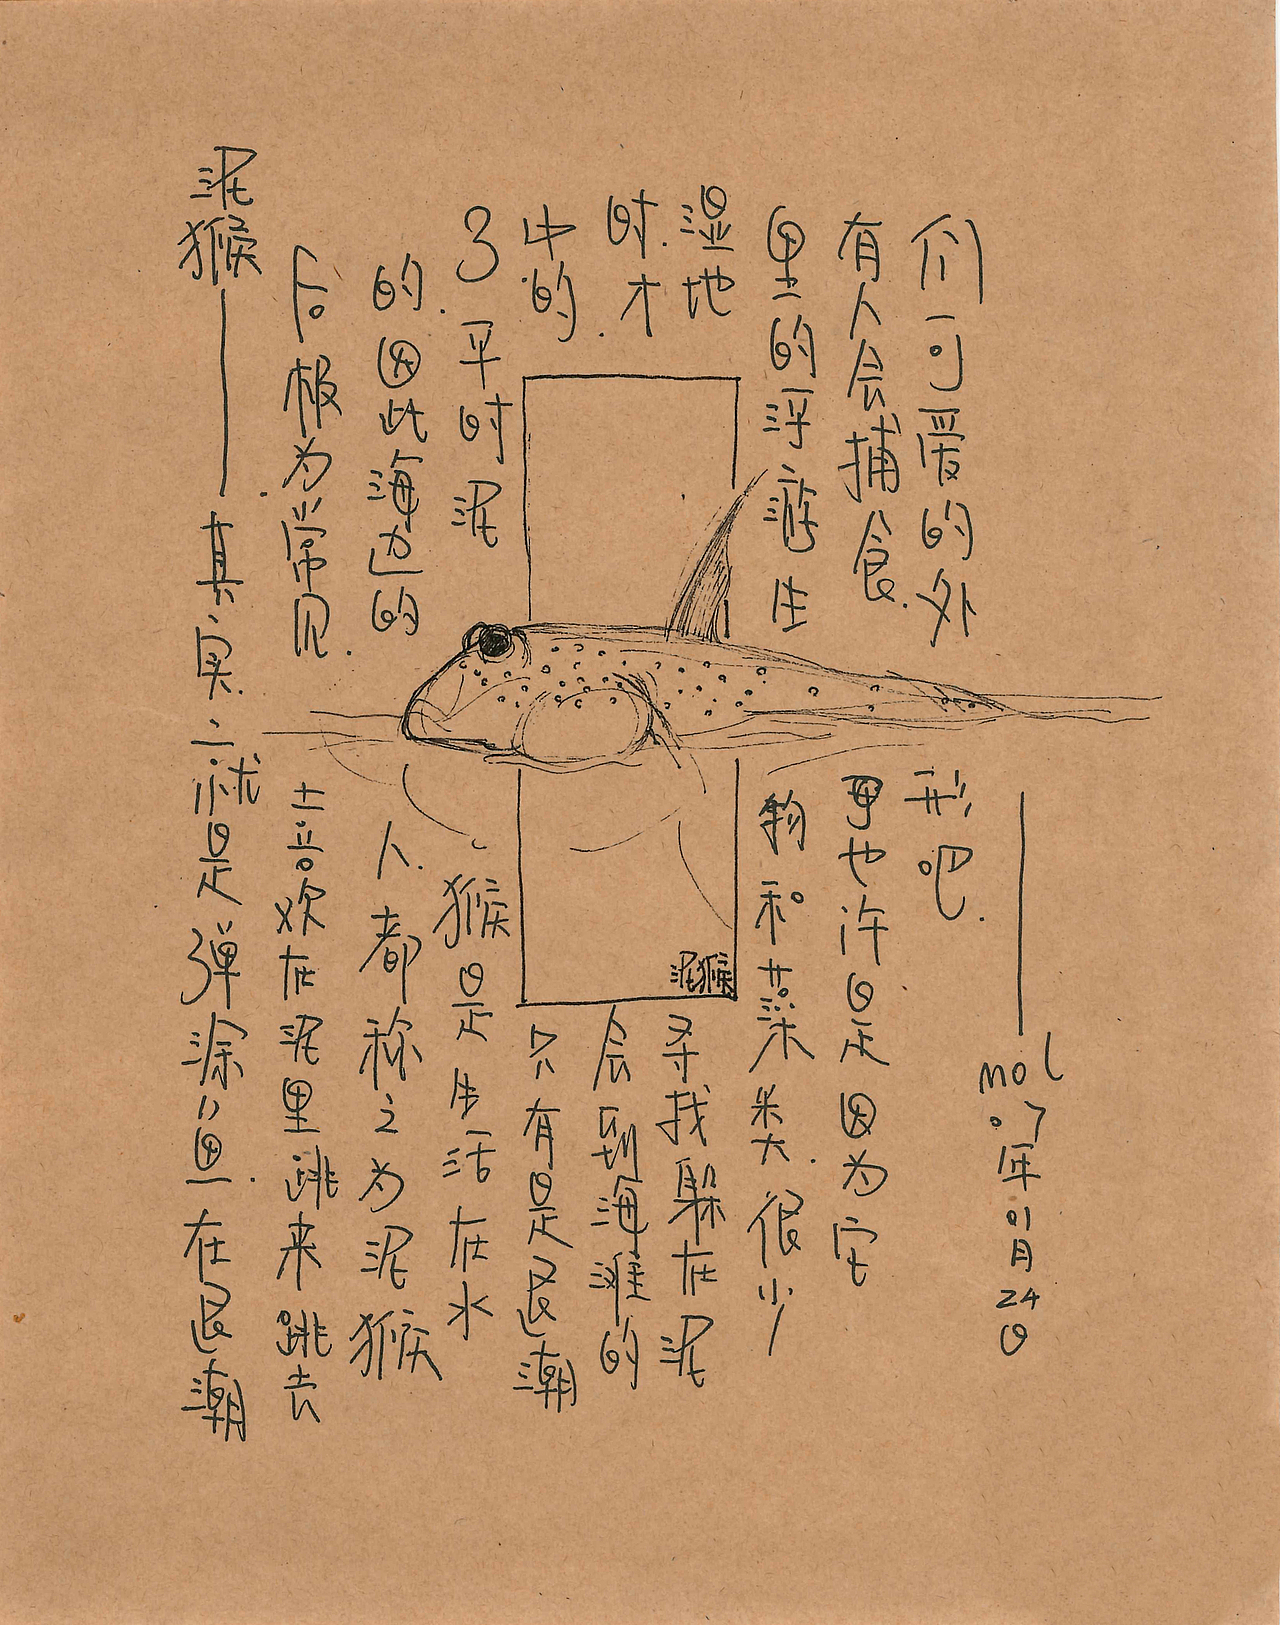 泥猴——真实.之就是弹涂鱼.在退潮
后极为常见.喜欢在泥里跳来跳去
的.因此海边的人.都称之为泥猴
了.平时泥猴是生活在水
中的.只有是退潮
时.才会到海滩的
湿地寻找躲在泥
里的浮游生物和藻类.很少
有人会捕食.更也许是因为它
们可爱的外形吧.
——mol.07年01月24日
泥猴